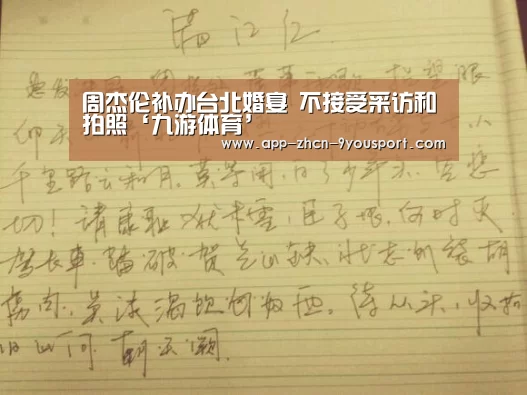 满江红
怒发 抬望眼
周杰伦补办台北婚宴 不接受采访和
拍照‘九游体育’
www.app-zhcn-9yousport.com
仰天
千里路云和月。莫等闲,白了少年头,空悲
切!靖康耻,犹未雪,臣子恨,何时灭
驾长车,踏破,贺兰山缺,壮志饥餐胡
虏肉,笑谈渴饮匈奴血。待从头,收拾
旧山河,朝天阙.